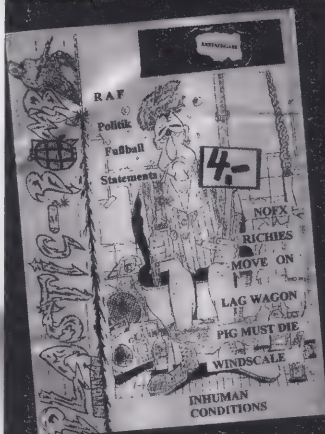 PLASTIC-BOMB
RAF
Politik
Fußball
Statements
4.-
NOFX
RICHIES
MOVE ON
LAG WAGON
PIG MUST DIE
WINDSCALE
INHUMAN
CONDITIONS